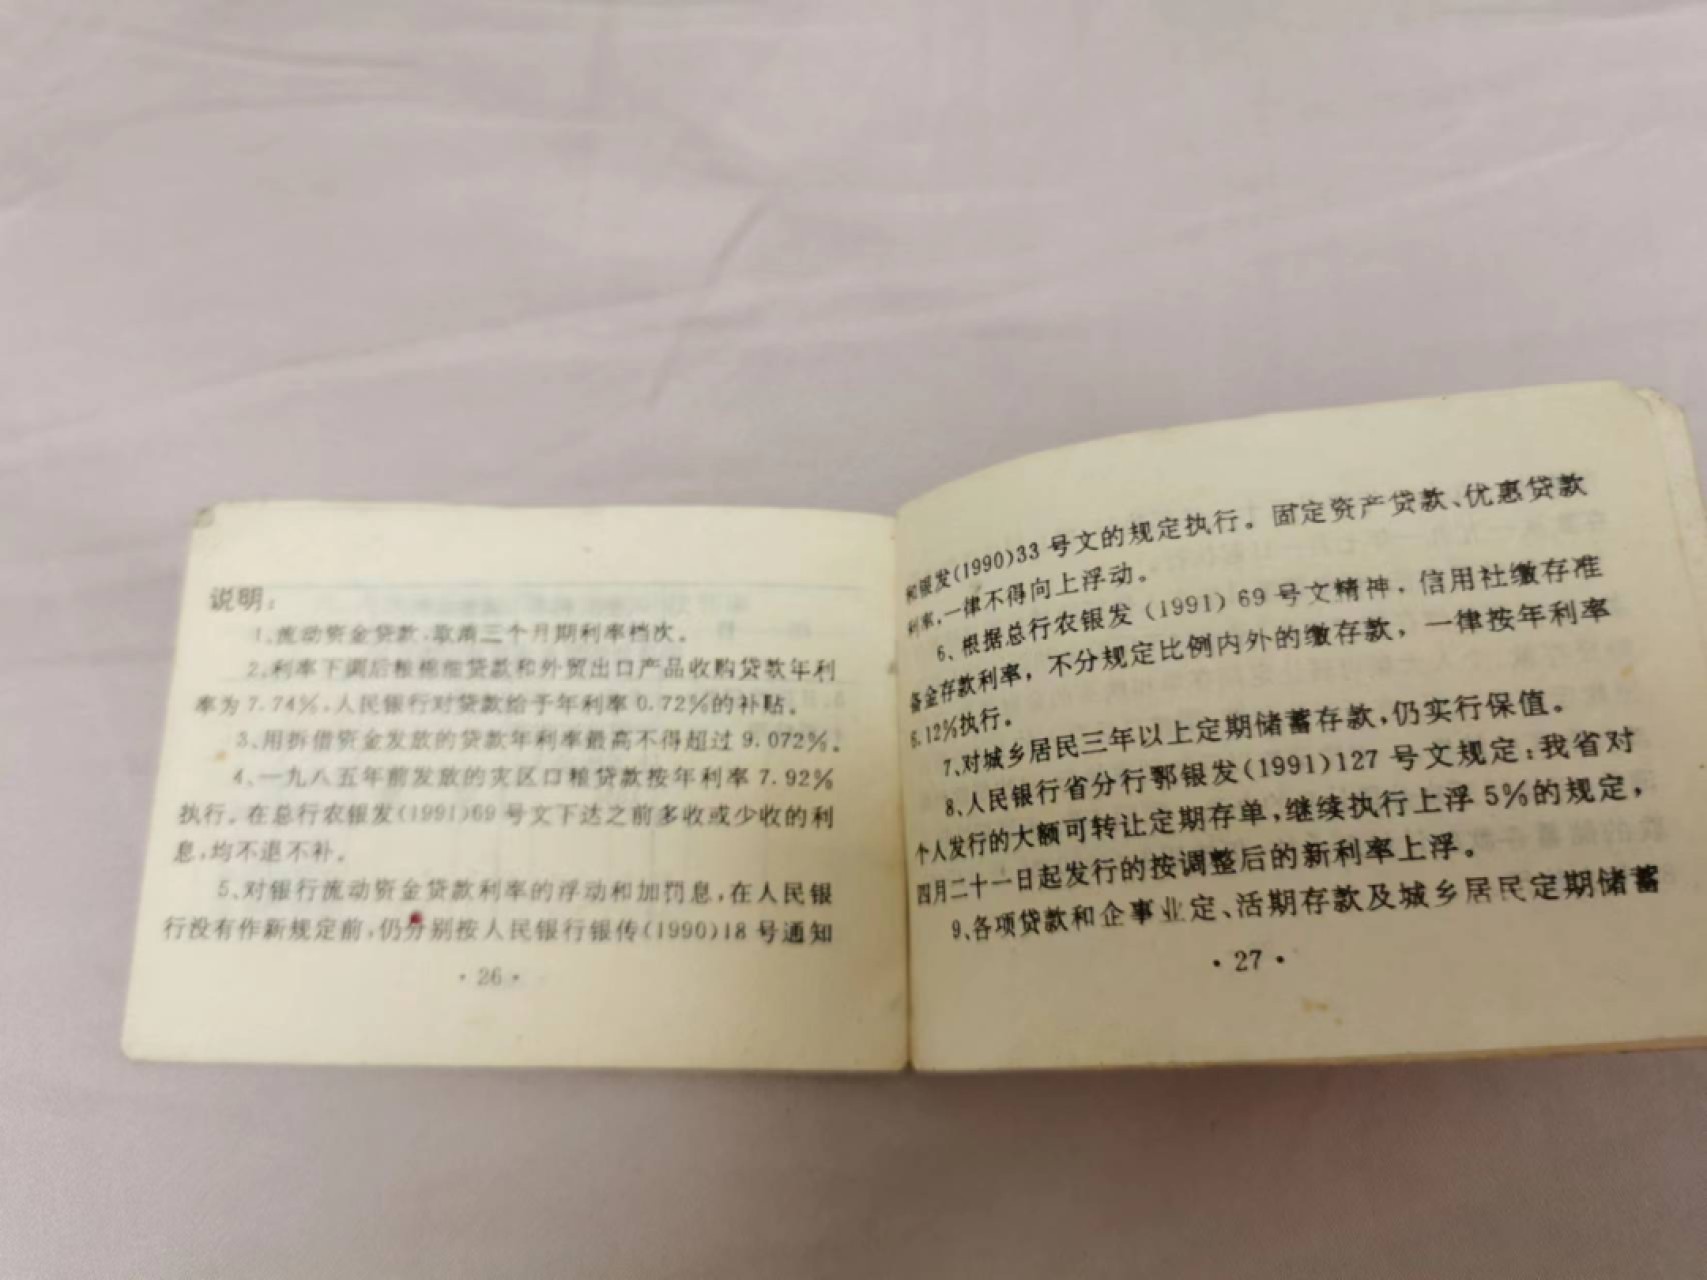 说明：
1、流动资金贷款，取消三个月期利率档次。
2、利率下调后粮棉油贷款和外贸出口产品收购贷款年利
率为7.74%，人民银行对贷款给予年利率0.72%的补贴。
3、用拆借资金发放的贷款年利率最高不得超过9.072%。
4、一九八五年前发放的灾区口粮贷款按年利率7.92%
执行。在总行农银发(1991)69号文下达之前多收或少收的利
息，均不退不补。
5、对银行流动资金贷款利率的浮动和加罚息，在人民银
行没有作新规定前，仍分别按人民银行银传(1990)18号通知
·26·
和银发(1990)33号文的规定执行。固定资产贷款、优惠贷款
利率，一律不得向上浮动。
6、根据总行农银发（1991）69号文精神，信用社缴存准
备金存款利率，不分规定比例内外的缴存款，一律按年利率
6.12%执行。
7、对城乡居民三年以上定期储蓄存款，仍实行保值。
8、人民银行省分行鄂银发(1991)127号文规定：我省对
个人发行的大额可转让定期存单，继续执行上浮5%的规定，
四月二十一日起发行的按调整后的新利率上浮。
9、各项贷款和企事业定、活期存款及城乡居民定期储蓄
·27·